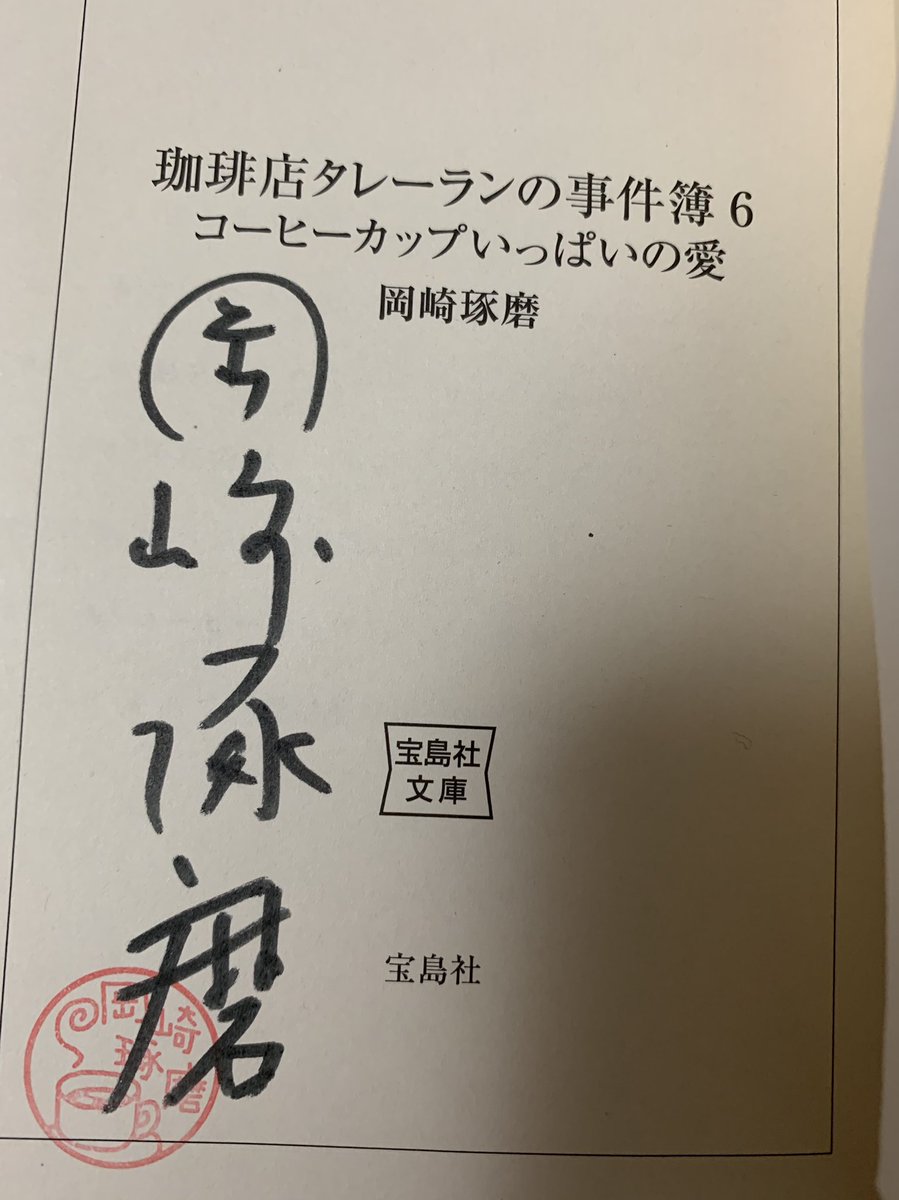 珈琲店タレーランの事件簿 6
コーヒーカップいっぱいの愛
岡崎琢磨
岡崎琢磨
宝島社
文庫
宝島社
岡崎
琢磨